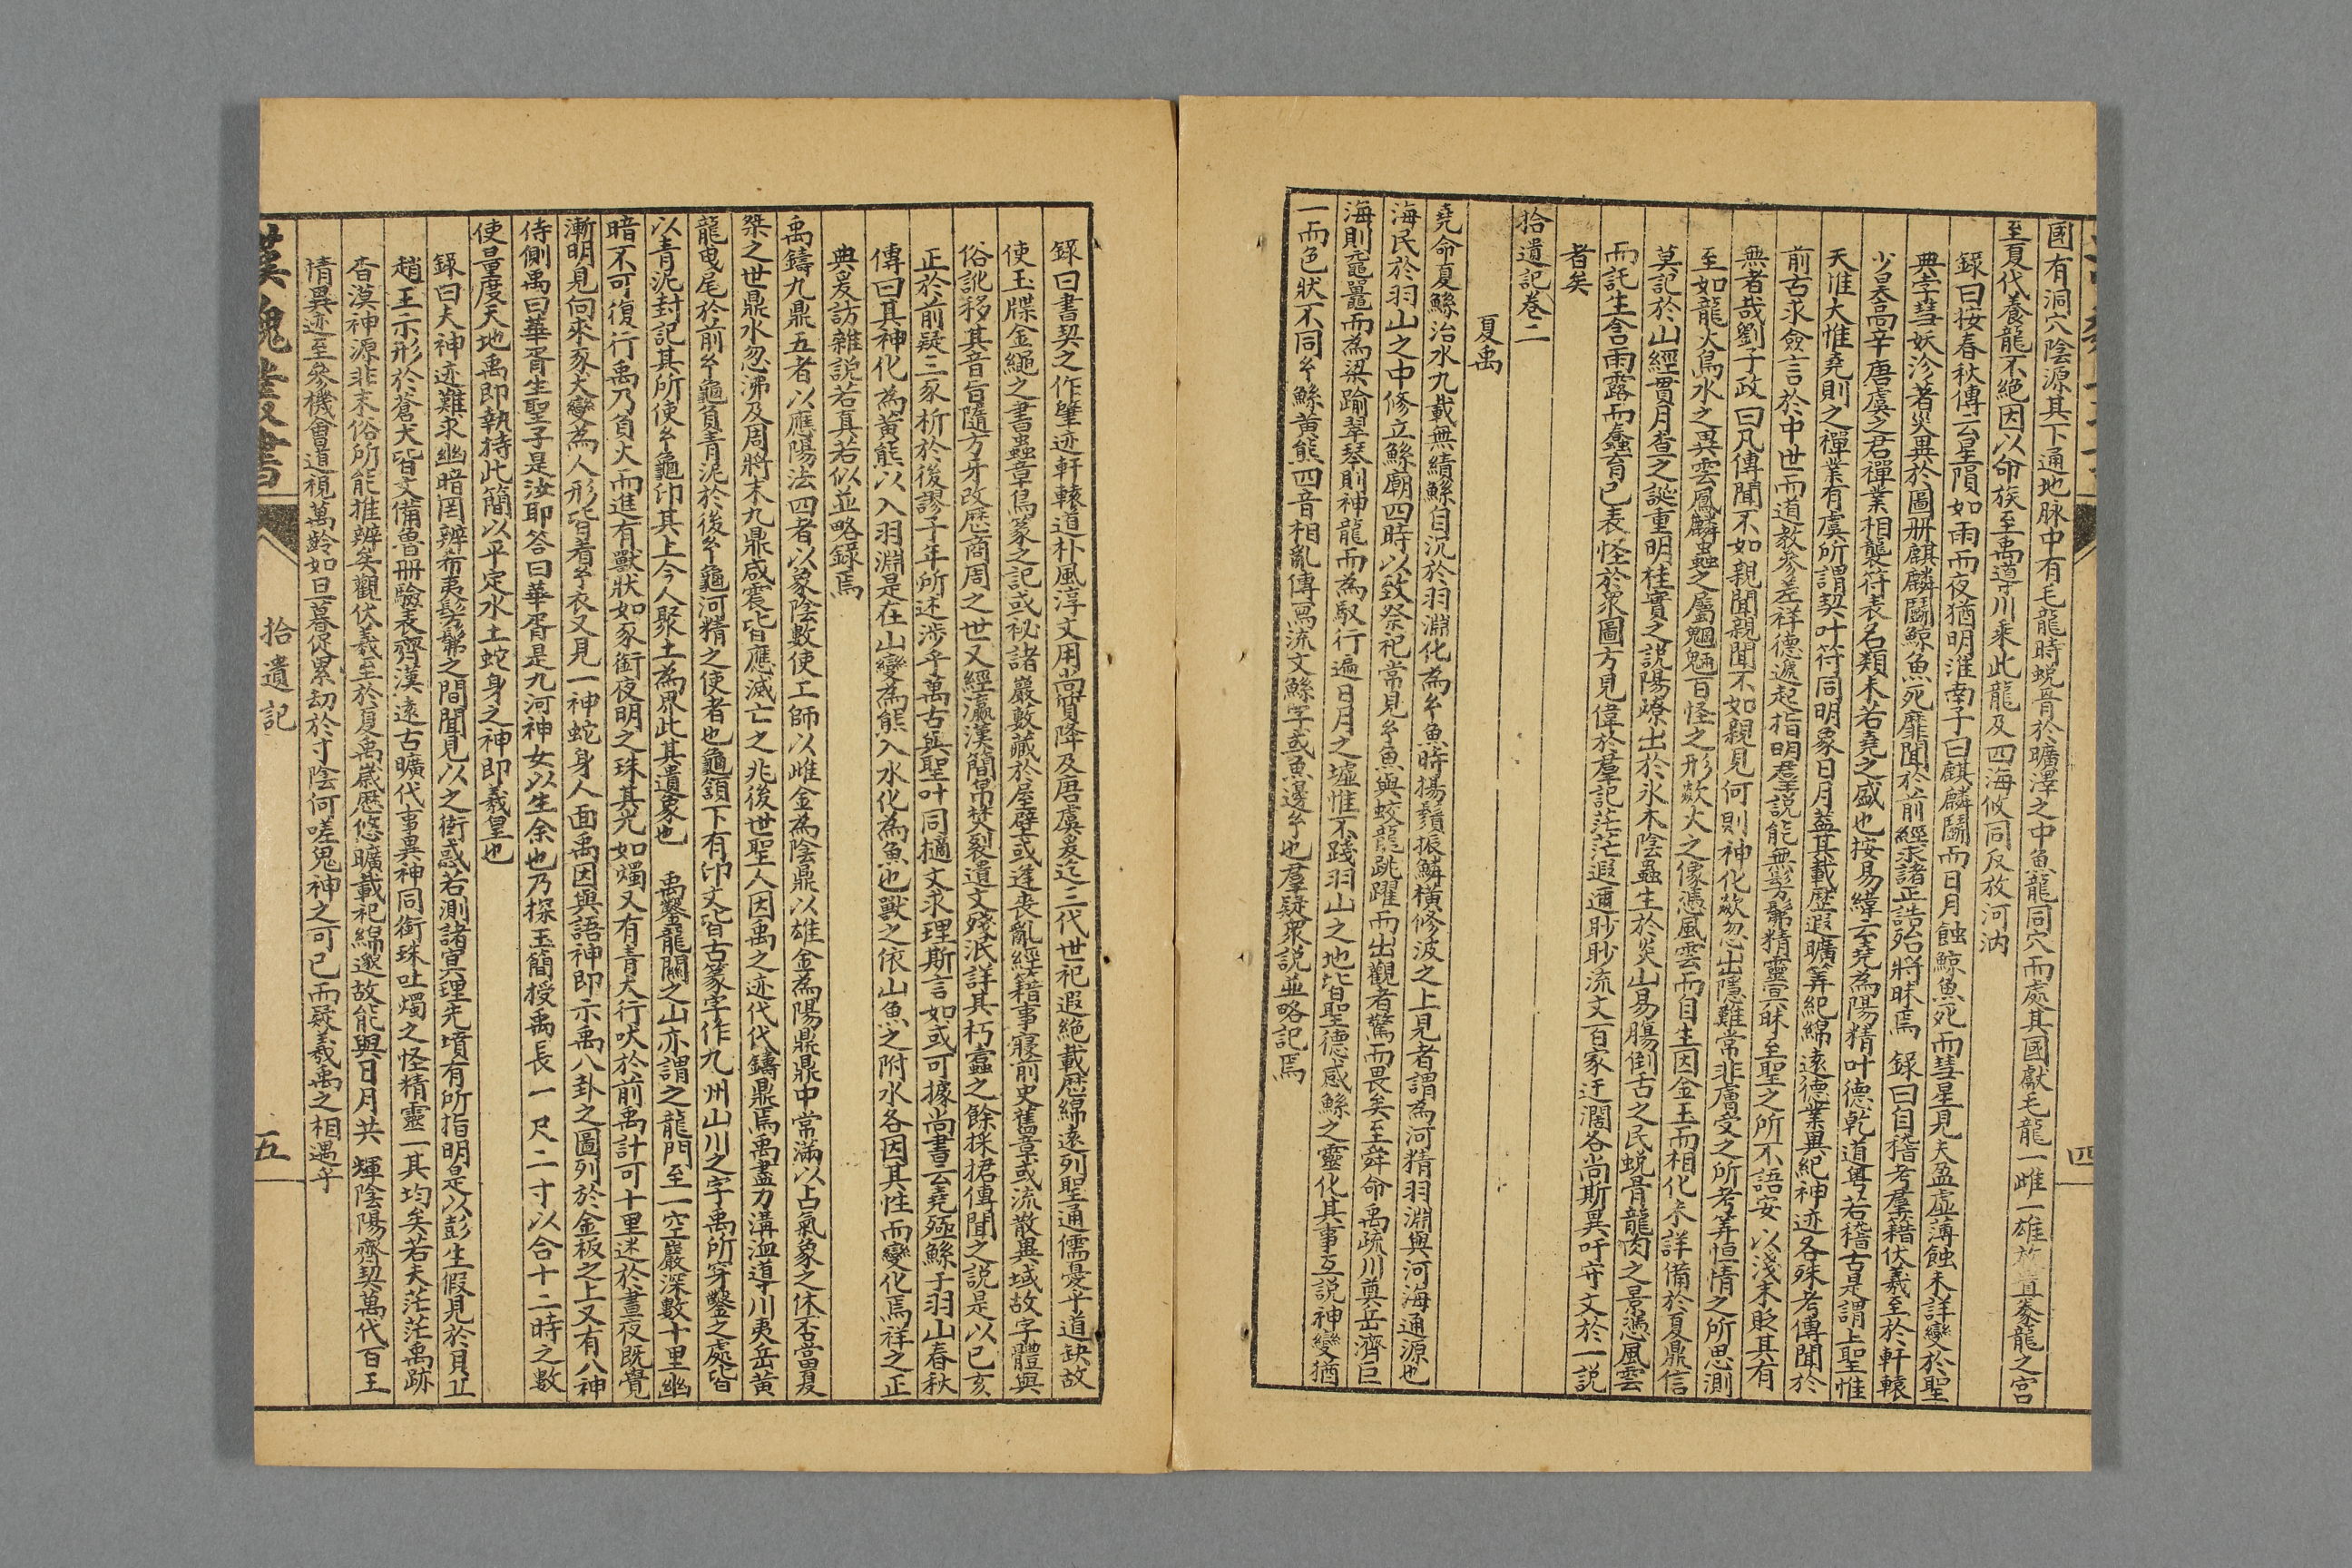 國有洞穴陰源其下通地脉中有毛龍時蛻骨於曠澤之中魚龍同穴而處其國獻毛龍一雌一雄故置豢龍之宮
至夏代養龍不絕因以命族至禹導川乘此龍及四海攸同反放河汭
錄曰按春秋傳云星隕如雨而夜猶明淮南子曰麒麟鬬而日月蝕鯨魚死而彗星見夫盈虛薄蝕未詳變於聖
典孛彗妖沴著災異於圖册麒麟鬬鯨魚死靡聞於前經求諸正誥殆將昧焉 錄曰自稽考羣籍伏羲至於軒轅
少昊高辛唐虞之君禪業相襲符表名類未若堯之盛也按易緯云堯為陽精叶德乾道粵若稽古是謂上聖惟
天惟大惟堯則之禪業有虞所謂契叶符同明象日月蓋其載歷遐曠筭紀綿遠德業異紀神迹各殊考傳聞於
前古求僉言於中世而道教參差祥德遞起指明羣說能無髣髴精靈冥昧至聖之所不語安以淺末貶其有
無者哉劉子政曰凡傳聞不如親聞親聞不如親見何則神化歘忽出隱難常非膚受之所考筭恒情之所思測
至如龍火鳥水之異雲鳳麟蟲之屬魍魎百怪之形歘火之像憑風雲而自生因金玉而相化未詳備於夏鼎信
莫記於山經貫月查之誕重明桂實之說陽燎出於氷木陰蟲生於炎山易腸倒古之民蛻骨龍肉之景憑風雲
而託生含雨露而蠢育已表怪於衆圖方見偉於羣記茫茫遐邇眇眇流文百家迂濶各尚斯異吁守文於一說
者矣
拾遺記卷二
夏禹
堯命夏鯀治水九載無績鯀自沉於羽淵化為玄魚時揚鬚振鱗橫修波之上見者謂為河精羽淵與河海通源也
海民於羽山之中修立鯀廟四時以致祭祀常見玄魚與蛟龍跳躍而出觀者驚而畏矣至舜命禹疏川奠岳濟巨
海則黿鼉而為梁踰翠岑則神龍而為馭行遍日月之墟惟不踐羽山之地皆聖德感鯀之靈化其事互說神變猶
一而色狀不同玄鯀黄熊四音相亂傳寫流文鯀字或魚邊玄也羣疑衆說並略記焉
四
錄曰書契之作肇迹軒轅道朴風淳文用尚質降及唐虞爰迄三代世祀遐絕載歷綿遠列聖通儒憂乎道缺故
使玉牒金繩之書蟲章鳥篆之記或祕諸巖數藏於屋壁或逢喪亂經籍事寢前史舊章或流散異域故字體與
俗訛移其音旨隨方牙改歷商周之世又經瀛漢簡帛焚裂遺文殘泯詳其朽蠹之餘採捃傳聞之說是以已亥
正於前疑三豕析於後謬子年所述涉乎萬古與聖叶同擿文求理斯言如或可據尚書云堯殛鯀于羽山春秋
傳曰其神化為黄熊以入羽淵是在山變為熊入水化為魚也獸之依山魚之附水各因其性而變化焉祥之正
典爰訪雜說若真若似並略錄焉
禹鑄九鼎五者以應陽法四者以象陰數使工師以雌金為陰鼎以雄金為陽鼎鼎中常滿以占氣象之休否當夏
桀之世鼎水忽沸及周將末九鼎咸震皆應滅亡之兆後世聖人因禹之迹代代鑄鼎焉禹盡力溝洫導川夷岳黄
龍曳尾於前玄龜負青泥於後玄龜河精之使者也龜頷下有印文皆古篆字作九州山川之字禹所穿鑿之處皆
以青泥封記其所使玄龜印其上今人聚土為界此其遺象也 禹鑿龍關之山亦謂之龍門至一空巖深數十里幽
暗不可復行禹乃負火而進有獸狀如豕銜夜明之珠其光如燭又有青犬行吠於前禹計可十里迷於晝夜既覺
漸明見向來豕犬變為人形皆着玄衣又見一神蛇身人面禹因與語神即示禹八卦之圖列於金板之上又有八神
侍側禹曰華胥生聖子是汝耶答曰華胥是九河神女以生余也乃探玉簡授禹長一尺二寸以合十二時之數
使量度天地禹即執持此簡以平定水土蛇身之神即羲皇也
錄曰夫神迹難求幽暗罔辨希夷髣髴之間聞見以之衒惑若測諸冥理先墳有所指明是以彭生假見於貝丘
趙王示形於蒼犬皆文備魯册驗表齊漢遠古曠代事異神同銜珠吐燭之怪精靈一其均矣若夫茫茫禹跡
杳漠神源非末俗所能推辨矣觀伏羲至於夏禹歲歷悠曠載祀綿邈故能與日月共輝陰陽齊契萬代百王
情異迹至參機會道視萬齡如旦暮促累刧於寸陰何嗟鬼神之可已而疑羲禹之相遇乎
漢魏叢書
拾遺記
五